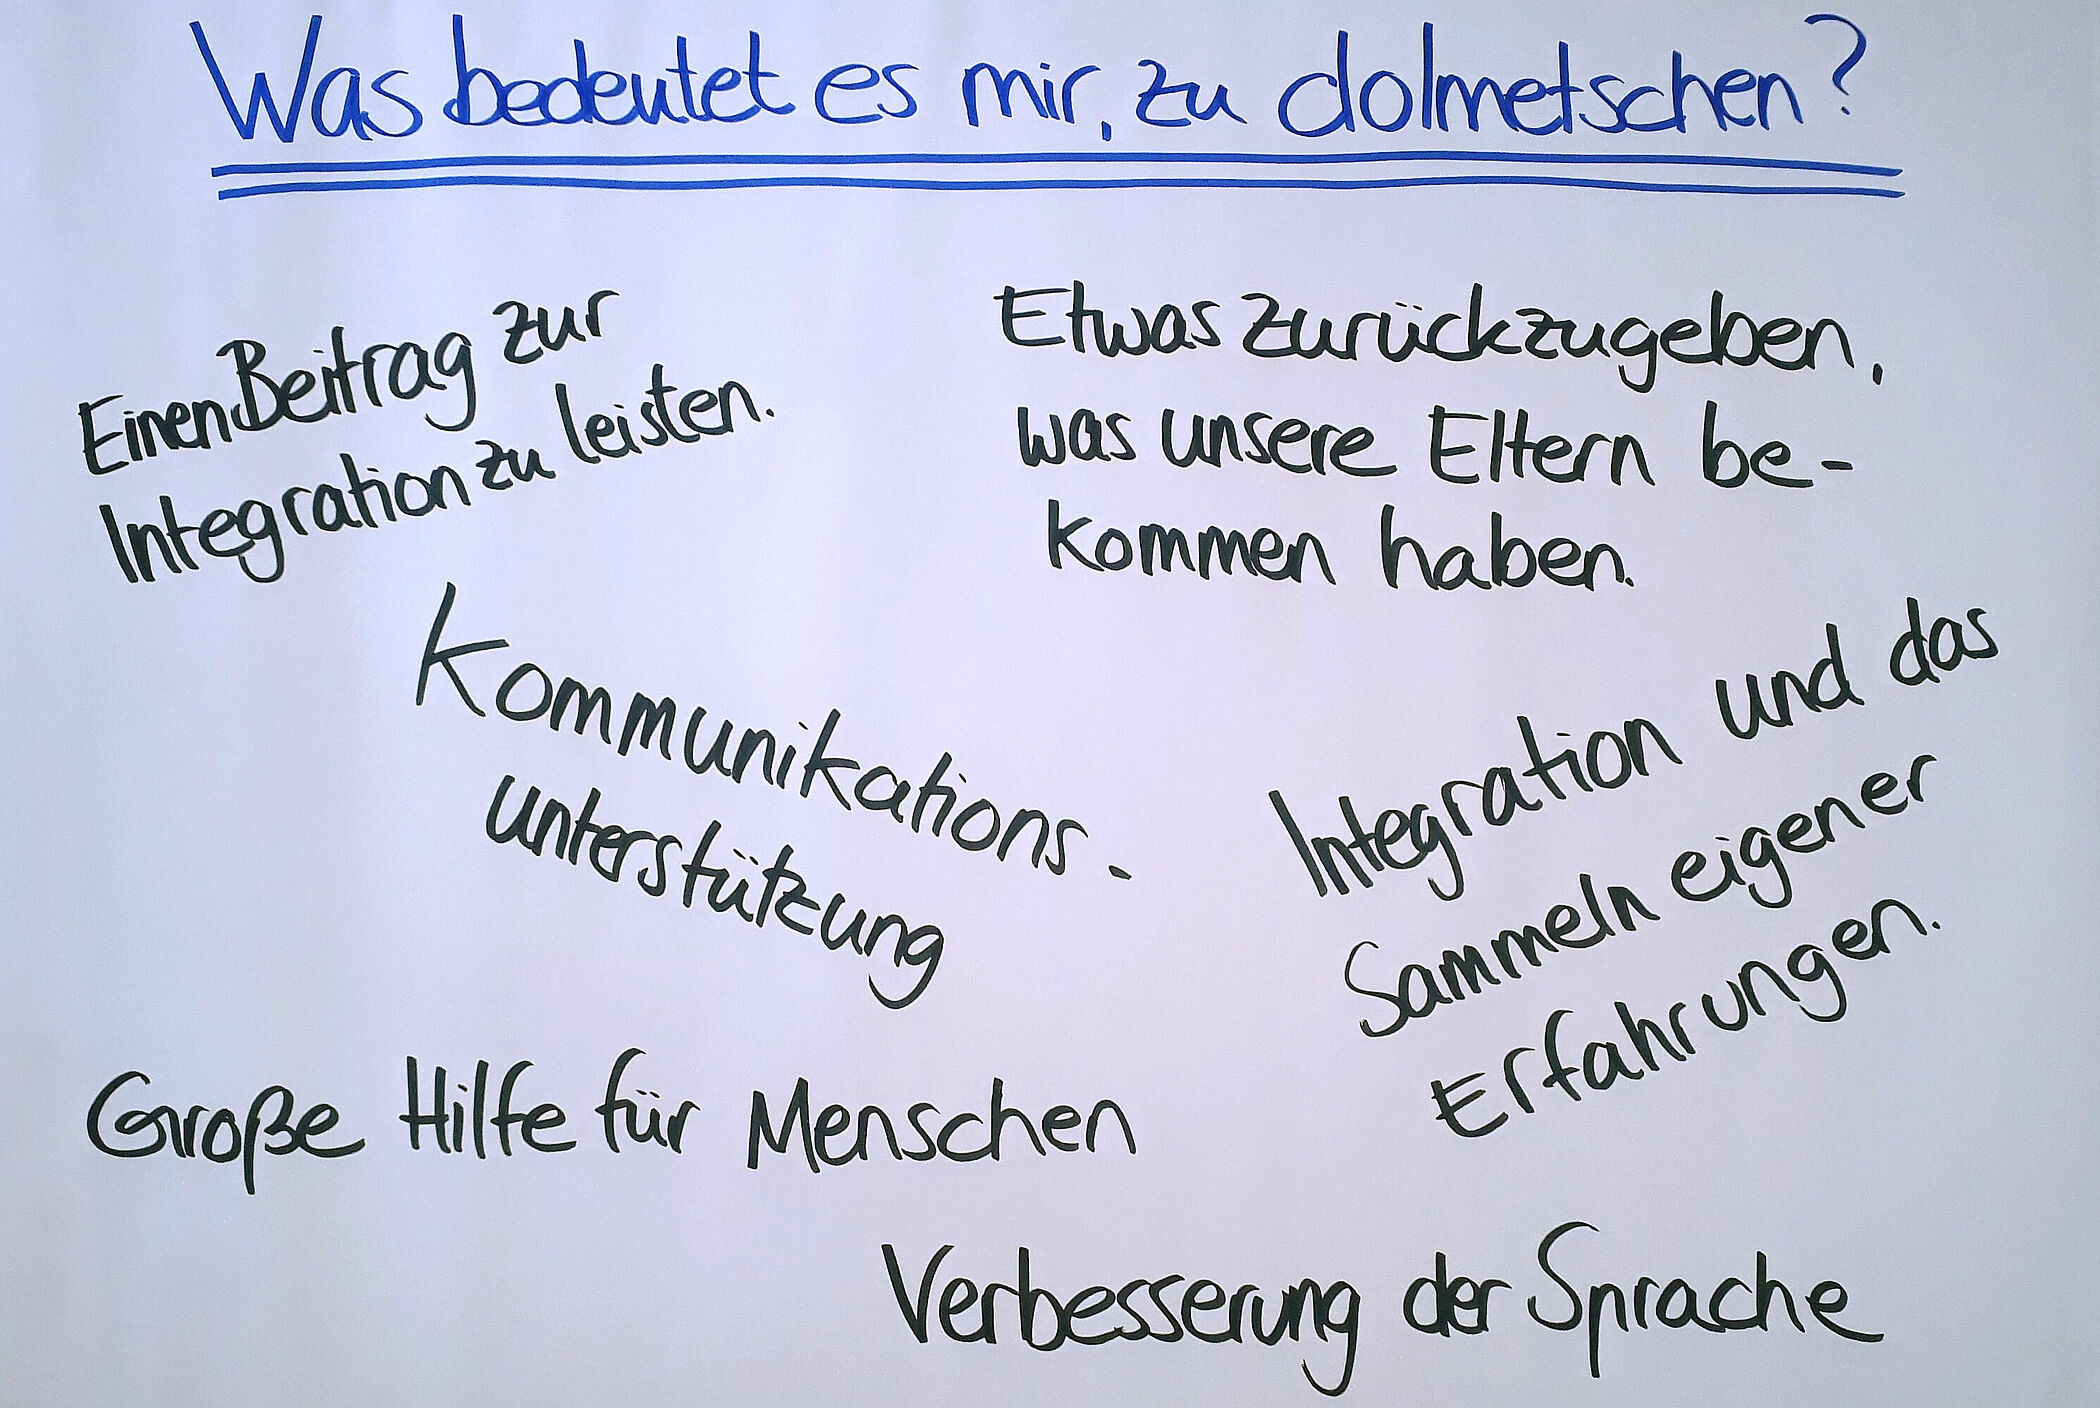 Was bedeutet es mir, zu dolmetschen?
Einen Beitrag zur
Integration zu leisten.
Etwas zurückzugeben,
was unsere Eltern be-
kommen haben.
Kommunikations-
unterstützung
Integration und das
Sammeln eigener
Erfahrungen.
Große Hilfe für Menschen
Verbesserung der Sprache